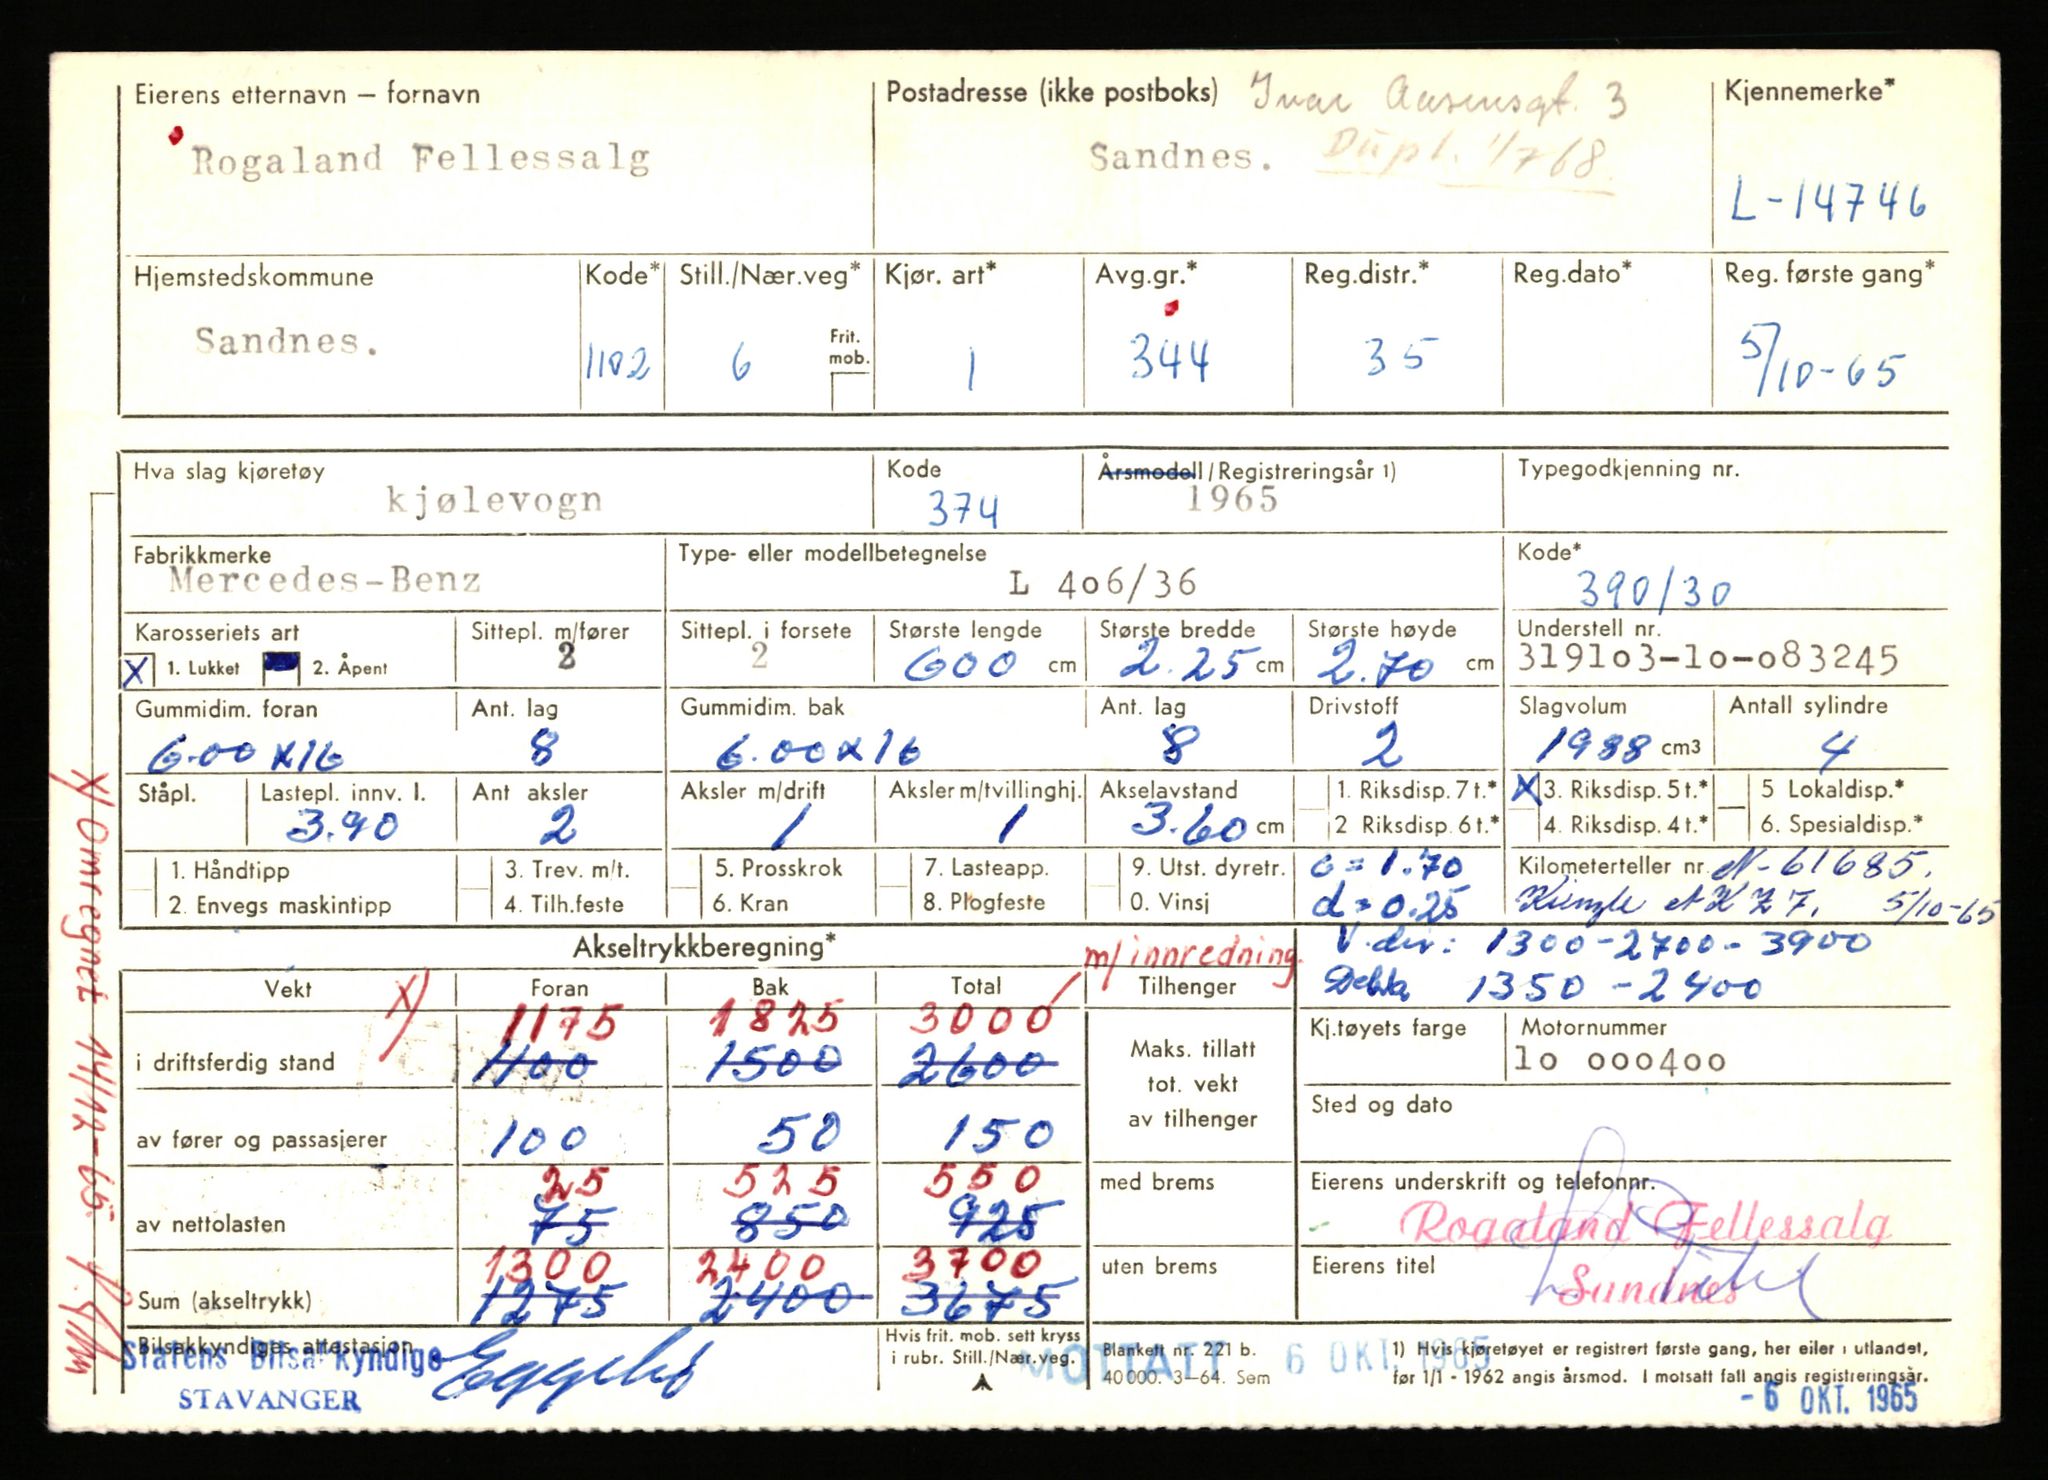 Eierens etternavn – fornavn
Rogaland Fellessalg
Postadresse (ikke postboks) Ivar Aasensgt. 3
Sandnes. Dupl. 1/7 68.
Kjennemerke*
L-14746
Hjemstedskommune
Sandnes.
Kode*
1102
Still./Nær.veg*
6
Frit.
mob.
Kjør. art*
1
Avg.gr.*
344
Reg.distr.*
35
Reg.dato*
Reg. første gang*
5/10-65
Hva slag kjøretøy
kjølevogn
Kode
374
Årsmodell/Registreringsår 1)
1965
Typegodkjenning nr.
Fabrikkmerke
Mercedes-Benz
Type- eller modellbetegnelse
L 406/36
Kode*
390/30
Karosseriets art
X 1. Lukket 2. Åpent
Sittepl. m/fører
2
Sittepl. i forsete
2
Største lengde
600 cm
Største bredde
2.25 cm
Største høyde
2.70 cm
Understell nr.
319103-10-083245
Gummidim. foran
6.00x16
Ant. lag
8
Gummidim. bak
6.00x16
Ant. lag
8
Drivstoff
2
Slagvolum
1988 cm3
Antall sylindre
4
Ståpl.
Lastepl. innv. l.
3.90
Ant aksler
2
Aksler m/drift
1
Aksler m/tvillinghj.
1
Akselavstand
3.60 cm
1. Riksdisp. 7 t.*
2 Riksdisp. 6 t.*
X 3. Riksdisp. 5 t.*
4. Riksdisp. 4 t.*
5 Lokaldisp.*
6. Spesialdisp.*
1. Håndtipp
2. Envegs maskintipp
3. Trev. m/t.
4. Tilh.feste
5. Prosskrok
6. Kran
7. Lasteapp.
8. Plogfeste
9. Utst. dyretr.
0. Vinsj
c = 1.70
d = 0.25
Kilometerteller nr. N-61685.
Kienzle 5/10-65
Akseltrykkberegning*
m/innredning.
V. dev: 1300-2700-3900
1350-2400
Vekt
x)
Foran
Bak
Total
Tilhenger
1175 1825 3000
i driftsferdig stand 1100 1500 2600
av fører og passasjerer 100 50 150
25 525 550
av nettolasten 75 850 925
1300 2400 3700
Sum (akseltrykk) 1275 2400 3675
Maks. tillatt
tot. vekt
av tilhenger
med brems
uten brems
Kj.tøyets farge
Motornummer
10 000400
Sted og dato
Eierens underskrift og telefonnr.
Rogaland Fellessalg
Eierens titel
Sandnes
Bilsakkyndiges attestasjon
Statens Bilsakkyndige
STAVANGER
Hvis frit. mob. sett kryss
i rubr. Still./Nær.veg.
Blankett nr. 221 b.
40 000. 3–64. Sem
MOTTATT 6 OKT. 1965
1) Hvis kjøretøyet er registrert første gang, her eller i utlandet,
før 1/1 - 1962 angis årsmod. I motsatt fall angis registreringsår.
- 6 OKT. 1965
x) Omregnet 14/12-65